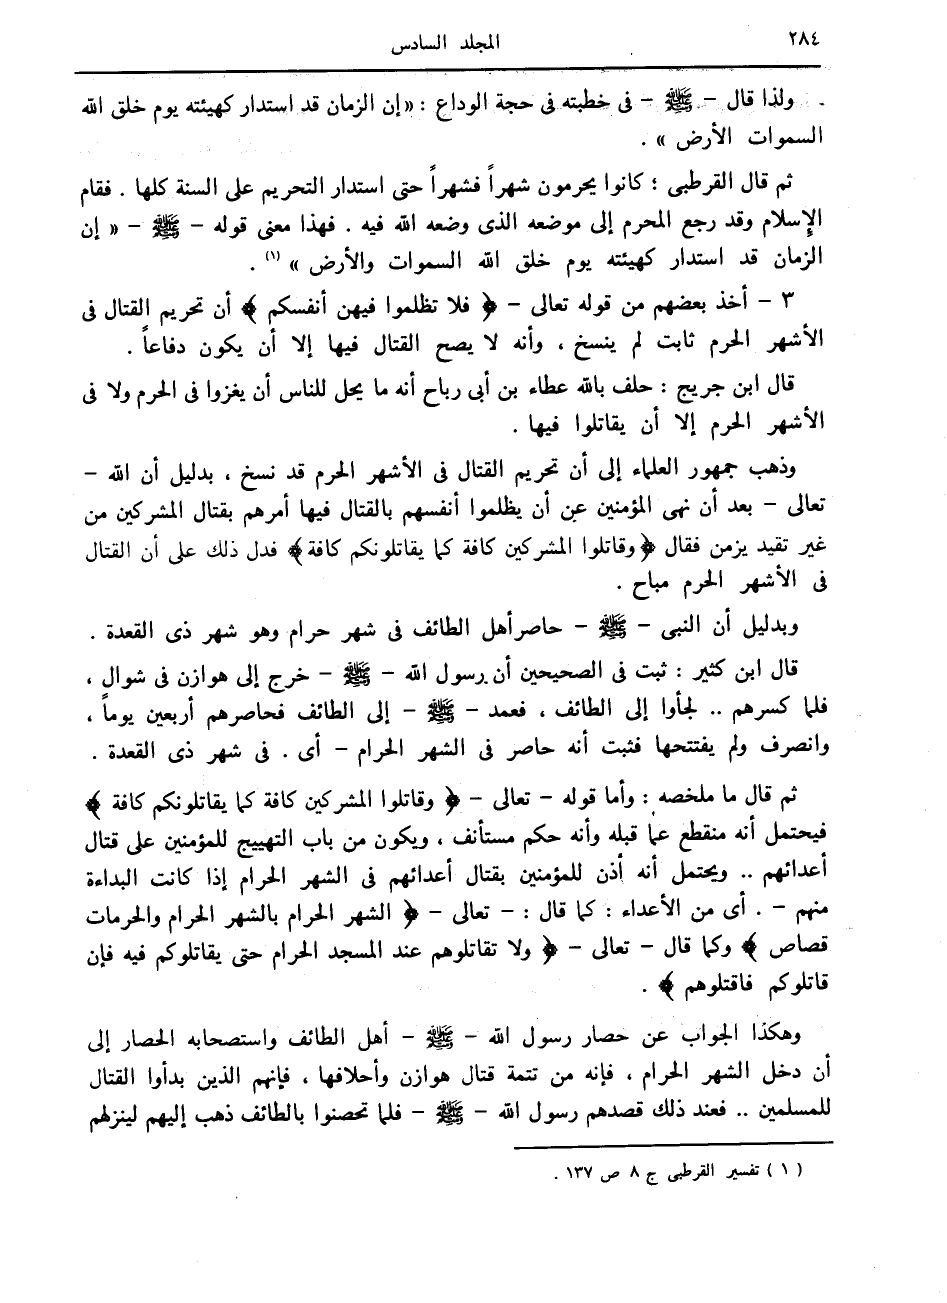 ٢٨٤
المجلد السادس
ولذا قال - ﷺ - فى خطبته فى حجة الوداع : «إن الزمان قد استدار كهيئته يوم خلق الله
السموات الأرض » .
ثم قال القرطبى ؛ كانوا يحرمون شهراً فشهراً حتى استدار التحريم على السنة كلها . فقام
الإسلام وقد رجع المحرم إلى موضعه الذى وضعه الله فيه . فهذا معنى قوله - ﷺ - « إن
الزمان قد استدار كهيئته يوم خلق الله السموات والأرض » (١) .
٣ - أخذ بعضهم من قوله تعالى - ﴿ فلا تظلموا فيهن أنفسكم ﴾ أن تحريم القتال فى
الأشهر الحرم ثابت لم ينسخ ، وأنه لا يصح القتال فيها إلا أن يكون دفاعاً .
قال ابن جريج : حلف بالله عطاء بن أبى رباح أنه ما يحل للناس أن يغزوا فى الحرم ولا فى
الأشهر الحرم إلا أن يقاتلوا فيها .
وذهب جمهور العلماء إلى أن تحريم القتال فى الأشهر الحرم قد نسخ ، بدليل أن الله -
تعالى - بعد أن نهى المؤمنين عن أن يظلموا أنفسهم بالقتال فيها أمرهم بقتال المشركين من
غير تقيد يزمن فقال ﴿ وقاتلوا المشركين كافة كما يقاتلونكم كافة﴾ فدل ذلك على أن القتال
فى الأشهر الحرم مباح .
وبدليل أن النبى - ﷺ - حاصر أهل الطائف فى شهر حرام وهو شهر ذى القعدة .
قال ابن كثير : ثبت فى الصحيحين أن رسول الله - ﷺ - خرج إلى هوازن فى شوال ،
فلما كسرهم .. لجأوا إلى الطائف ، فعمد - ﷺ - إلى الطائف فحاصرهم أربعين يوماً ،
وانصرف ولم يفتتحها فثبت أنه حاصر فى الشهر الحرام - أى . فى شهر ذى القعدة .
ثم قال ما ملخصه : وأما قوله - تعالى - ﴿ وقاتلوا المشركين كافة كما يقاتلونكم كافة ﴾
فيحتمل أنه منقطع عما قبله وأنه حكم مستأنف ، ويكون من باب التهييج للمؤمنين على قتال
أعدائهم .. ويحتمل أنه أذن للمؤمنين بقتال أعدائهم فى الشهر الحرام إذا كانت البداءة
منهم - . أى من الأعداء : كما قال : - تعالى - ﴿ الشهر الحرام بالشهر الحرام والحرمات
قصاص ﴾ وكما قال - تعالى - ﴿ ولا تقاتلوهم عند المسجد الحرام حتى يقاتلوكم فيه فإن
قاتلوكم فاقتلوهم ﴾ .
وهكذا الجواب عن حصار رسول الله - ﷺ - أهل الطائف واستصحابه الحصار إلى
أن دخل الشهر الحرام ، فإنه من تتمة قتال هوازن وأحلافها ، فإنهم الذين بدأوا القتال
للمسلمين .. فعند ذلك قصدهم رسول الله - ﷺ - فلما تحصنوا بالطائف ذهب إليهم لينزلهم
(١) تفسير القرطبى ج ٨ ص ١٣٧ .